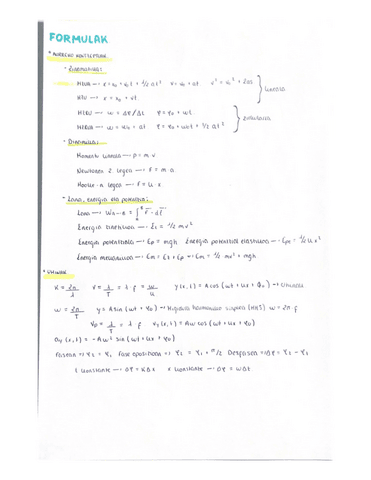 FORMULAK
* AURREKO KONTZEPTUAK
- Zinematika:
HZUA → x = x₀ + v₀t + 1/2 at² v = v₀ + at v² = v₀² + 2as
HZU → x = x₀ + vt
Lineala
HZBU → ω = Δφ/Δt φ = φ₀ + ωt
HZBUA → ω = ω₀ + αt φ = φ₀ + ω₀t + 1/2 αt²
- Dinamika:
Momentu lineala → p = m·v
Newtonen 2. legea → F = m·a
Hooke-n legea → F = k·x
- Lana, energia eta potentzia:
Lana → W A→B = ∫ F · dr
Energia zinetikoa → Ez = 1/2 mv²
Energia potentziala → Ep = mgh Energia potentzial elastikoa → Epe = 1/2 kx²
Energia mekanikoa → Em = Ez + Ep → Em = 1/2 mv² + mgh
* UHINAK
k = 2π/λ v = λ/T = λ·f = ω/k y(x,t) = A cos(ωt + kx + φ₀) →
ω = 2π/T y = A sin(ωt + φ₀) → Higidura harmoniko sinplea (HHS) ω = 2π·f
vp = λ/T = λ·f vy(x,t) = Aω cos(ωt + kx + φ₀)
ay(x,t) = -Aω² sin(ωt + kx + φ₀)
t konstante → Δφ = kΔx x konstante → Δφ = ωΔt